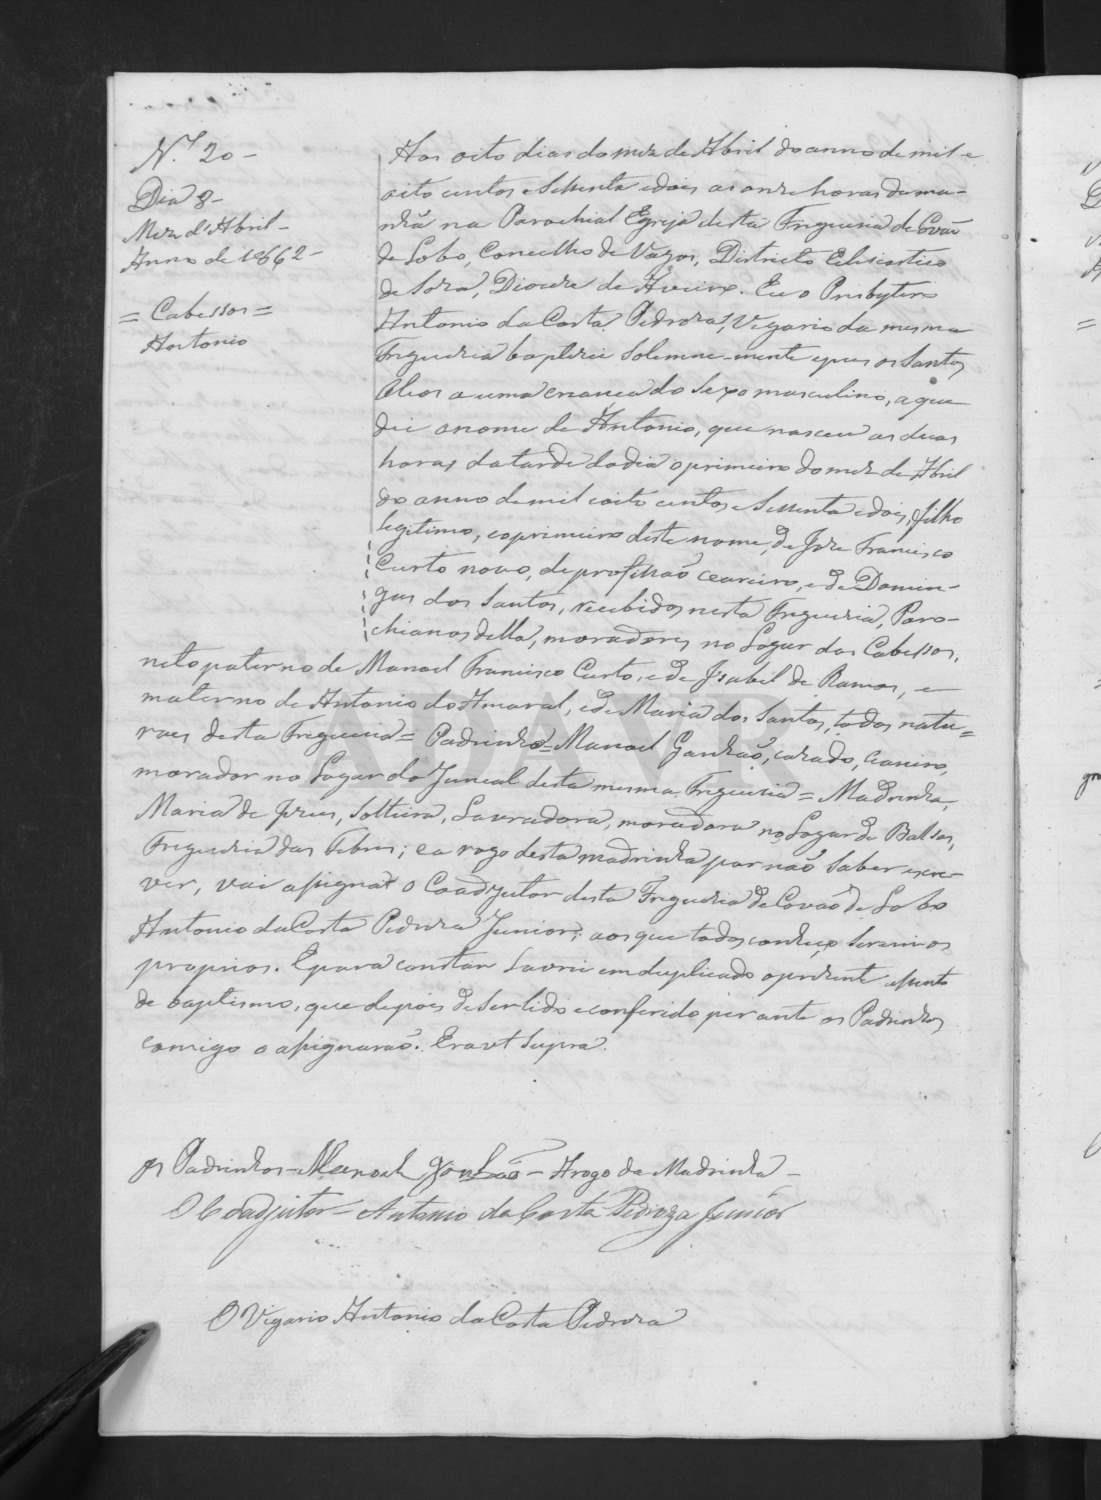 N.º 20 -
Dia 8 -
Mez d'Abril -
Anno de 1862 -
= Cabessos =
Antonio
Aos oito dias do mez de Abril do anno de mil e
oito centos e Sessenta e dois as onze horas da ma-
nhã na Parochial Egreja desta Freguezia de Covão
de Lobo, Concelho de Vagos, Districto Eclesiastico
de Soza, Dioceze de Aveiro. Eu o Presbytero
Antonio da Costa Pedroza, Vigario da mesma
Freguezia baptizei Solemne-mente e puz os Santos
Oleos a uma creança do Sexo masculino, a que
dei o nome de Antonio, que nasceu as duas
horas da tarde do dia o primeiro do mez de Abril
do anno de mil e oito centos e Sessenta e dois, filho
legitimo, e o primeiro deste nome, de Joze Francisco
Curto novo, de profissão ceareiro, e de Domin-
gas dos Santos, recebidos nesta Freguezia, Paro-
chianos della, moradores no Logar dos Cabessos,
neto paterno de Manoel Francisco Curto, e de Izabel de Ramos, e
materno de Antonio do Amaral, e de Maria dos Santos, todos natu=
raes desta Freguezia = Padrinho = Manoel Ganhão, cazado, Ceareiro,
morador no Logar do Juncal desta mesma Freguezia = Madrinha,
Maria de Jezus, Solteira, Lavradora, moradora no Logar de Balsas,
Freguezia das Febres; e a rogo desta madrinha por não Saber escre-
ver, vai assignar o Coadjutor desta Freguezia de Covão de Lobo
Antonio da Costa Pedroza Junior; aos que todos conheço Serem os
proprios. E para constar Lavrei em duplicado o prezente assento
de baptismo, que depois de Ser lido e conferido perante os Padrinhos
comigo o assignarão. Era ut Supra.
Os Padrinhos - Manoel Ganhão - A rogo da Madrinha -
O Coadjutor - Antonio da Costa Pedroza Junior
O Vigario Antonio da Costa Pedroza
ADAVR